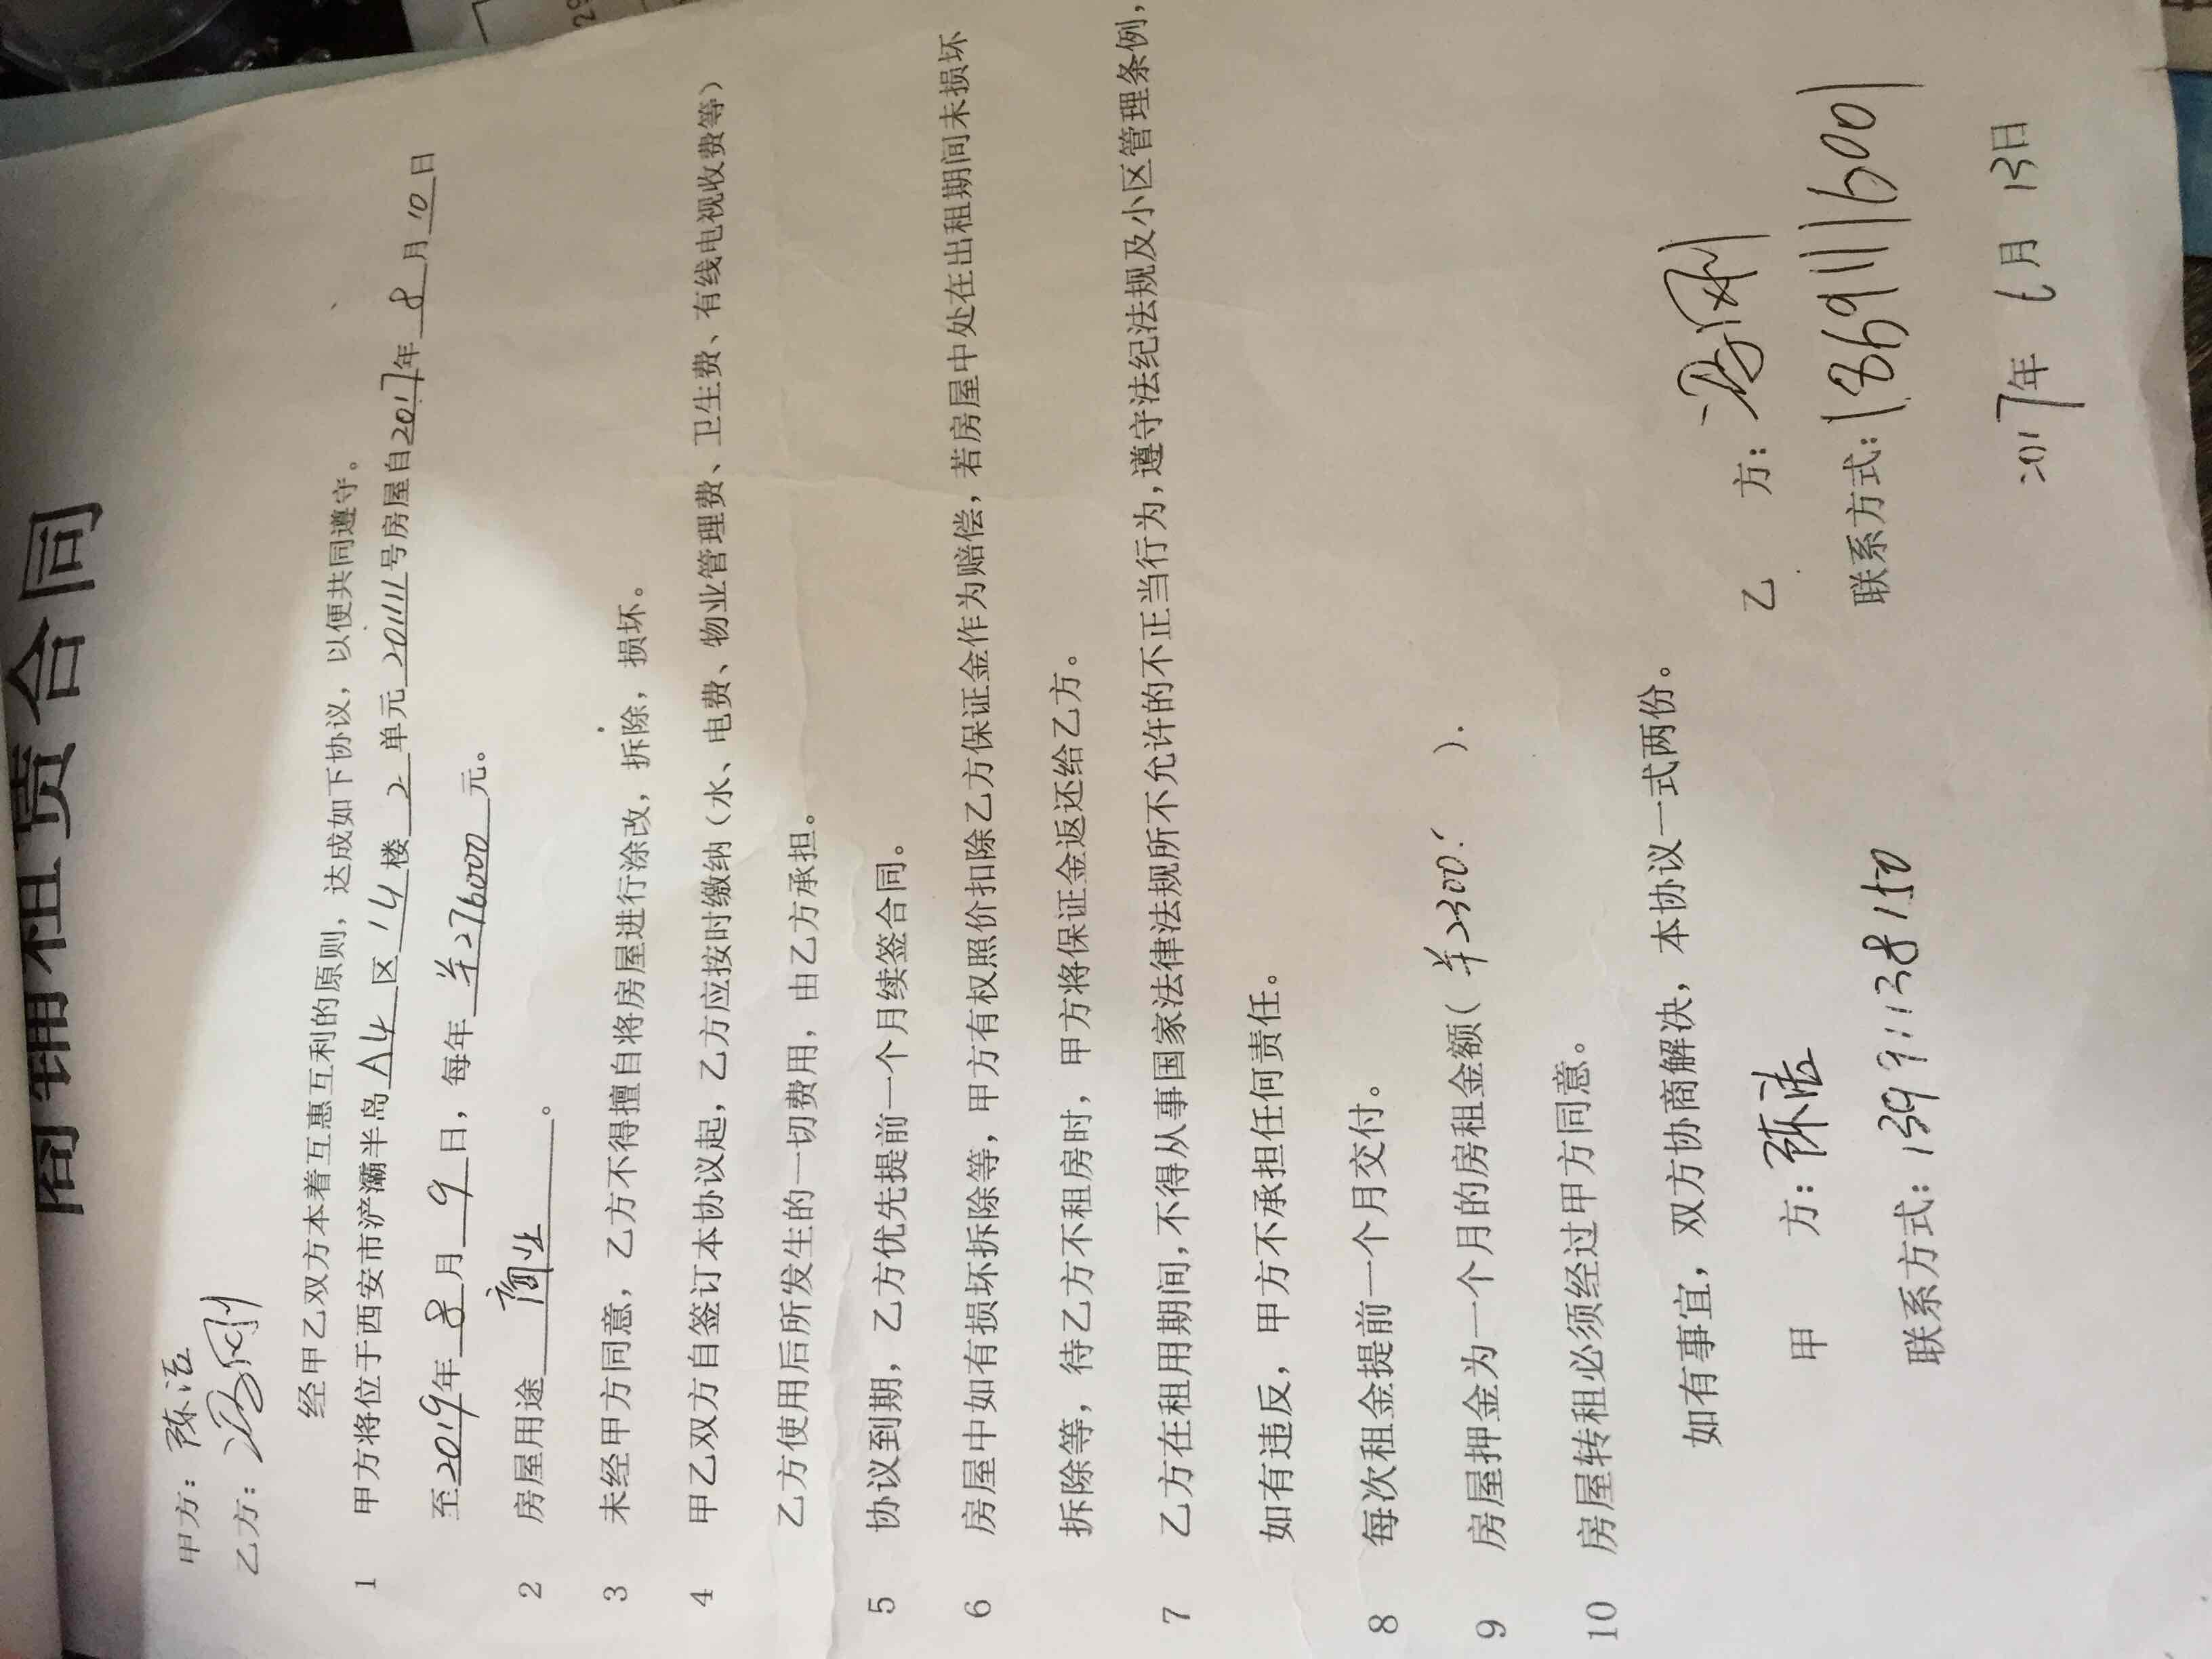 商铺租赁合同
甲方：陈洁
乙方：冯刚
经甲乙双方本着互惠互利的原则，达成如下协议，以便共同遵守。
1 甲方将位于西安市浐灞半岛A4区14楼2单元201111号房屋自2017年8月10日
至2019年8月9日，每年¥276000元。
2 房屋用途商业。
3 未经甲方同意，乙方不得擅自将房屋进行涂改，拆除，损坏。
4 甲乙双方自签订本协议起，乙方应按时缴纳（水、电费、物业管理费、卫生费、有线电视收费等）
乙方使用后所发生的一切费用，由乙方承担。
5 协议到期，乙方优先提前一个月续签合同。
6 房屋中如有损坏拆除等，甲方有权照价扣除乙方保证金作为赔偿，若房屋中处在出租期间未损坏
拆除等，待乙方不租房时，甲方将保证金返还给乙方。
7 乙方在租用期间，不得从事国家法律法规所不允许的不正当行为，遵守法纪法规及小区管理条例，
如有违反，甲方不承担任何责任。
8 每次租金提前一个月交付。
9 房屋押金为一个月的房租金额( ¥2300 ).
10 房屋转租必须经过甲方同意。
如有事宜，双方协商解决，本协议一式两份。
甲 方：陈洁
乙 方：冯刚
联系方式：13991138150
联系方式：18691116001
2017年 6月 13日